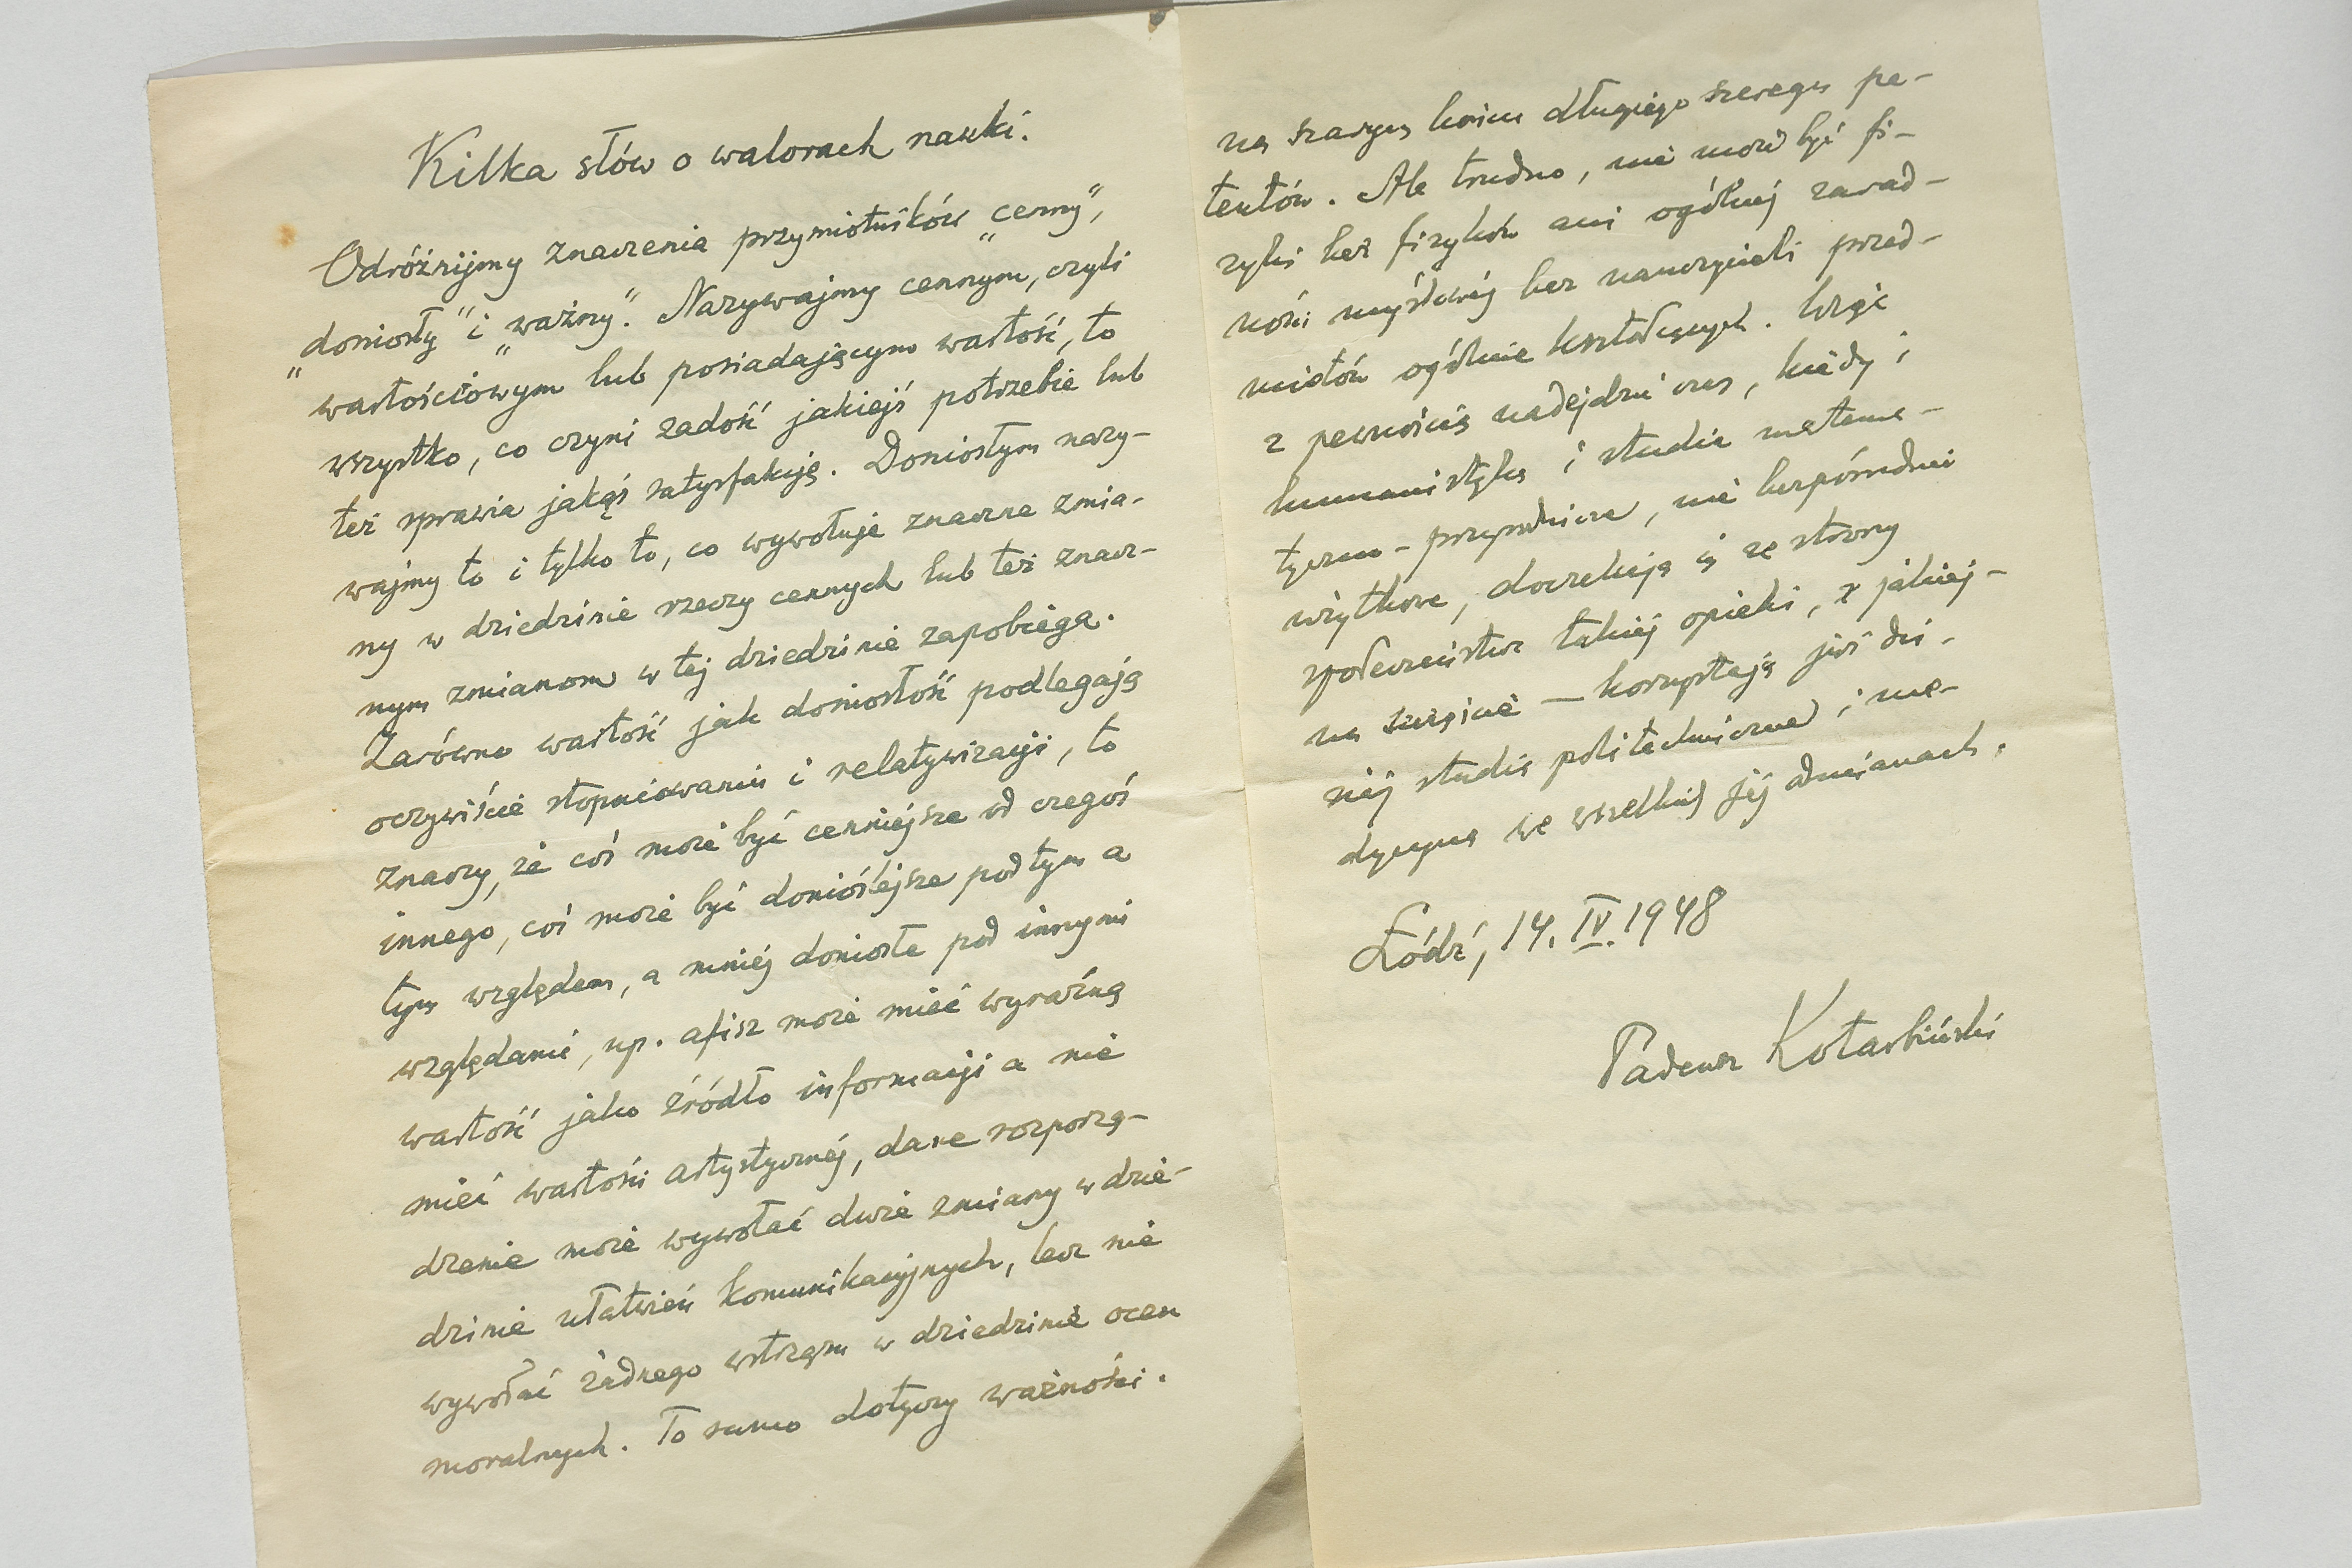 Kilka słów o walorach nauki.
Odróżnijmy znaczenia przymiotników „cenny”,
„doniosły” i „ważny”. Nazywajmy cennym, czyli
wartościowym lub posiadającym wartość, to
wszystko, co czyni zadość jakiejś potrzebie lub
też sprawia jakąś satysfakcję. Doniosłym nazy-
wajmy to i tylko to, co wywołuje znaczne zmia-
ny w dziedzinie rzeczy cennych lub też znacz-
nym zmianom w tej dziedzinie zapobiega.
Zarówno wartość jak doniosłość podlegają
oczywiście stopniowaniu i relatywizacji, to
znaczy, że coś może być cenniejsze od czegoś
innego, coś może być donioślejsze pod tym a
tym względem, a mniej doniosłe pod innymi
względami, np. afisz może mieć wyraźną
wartość jako źródło informacji a nie
mieć wartości artystycznej, dane rozporzą-
dzenie może wywołać duże zmiany w dzie-
dzinie ułatwień komunikacyjnych, lecz nie
wywołać żadnego wstrząsu w dziedzinie ocen
moralnych. To samo dotyczy ważności.
na szarym końcu długiego szeregu pe-
tentów. Ale trudno, nie może być fi-
zyki bez fizyków ani ogólnej zarad-
ności umysłowej bez nauczycieli przed-
miotów ogólnie kształcących. Więc
z pewnością nadejdzie czas, kiedy i
humanistyka i studia matema-
tyczno-przyrodnicze, nie bezpośrednio
użytkowe, doczekają się ze strony
społeczeństwa takiej opieki, z jakiej-
na szczęście – korzystają już dzi-
siaj studia politechniczne i me-
dycyna we wszelkich jej odmianach.
Łódź, 14. IV. 1948
Tadeusz Kotarbiński